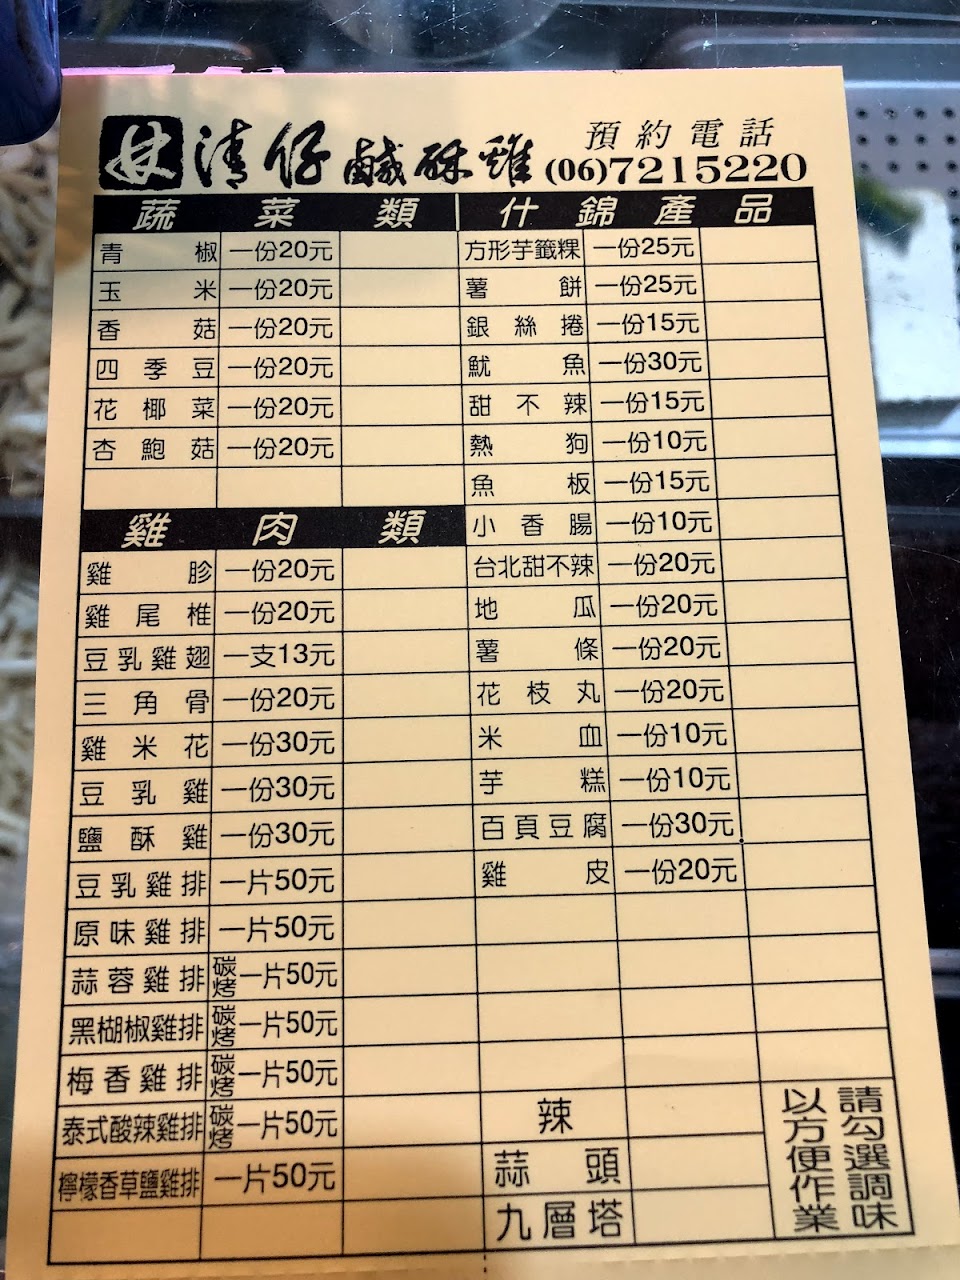 林清仔鹹酥雞
預約電話
(06)7215220
蔬菜類
青椒 一份20元
玉米 一份20元
香菇 一份20元
四季豆 一份20元
花椰菜 一份20元
杏鮑菇 一份20元
雞肉類
雞胗 一份20元
雞尾椎 一份20元
豆乳雞翅 一支13元
三角骨 一份20元
雞米花 一份30元
豆乳雞 一份30元
鹽酥雞 一份30元
豆乳雞排 一片50元
原味雞排 一片50元
蒜蓉雞排 碳烤 一片50元
黑楜椒雞排 碳烤 一片50元
梅香雞排 碳烤 一片50元
泰式酸辣雞排 碳烤 一片50元
檸檬香草鹽雞排 一片50元
什錦產品
方形芋籤粿 一份25元
薯餅 一份25元
銀絲捲 一份15元
魷魚 一份30元
甜不辣 一份15元
熱狗 一份10元
魚板 一份15元
小香腸 一份10元
台北甜不辣 一份20元
地瓜 一份20元
薯條 一份20元
花枝丸 一份20元
米血 一份10元
芋糕 一份10元
百頁豆腐 一份30元
雞皮 一份20元
辣
蒜頭
九層塔
請勾選調味
以方便作業